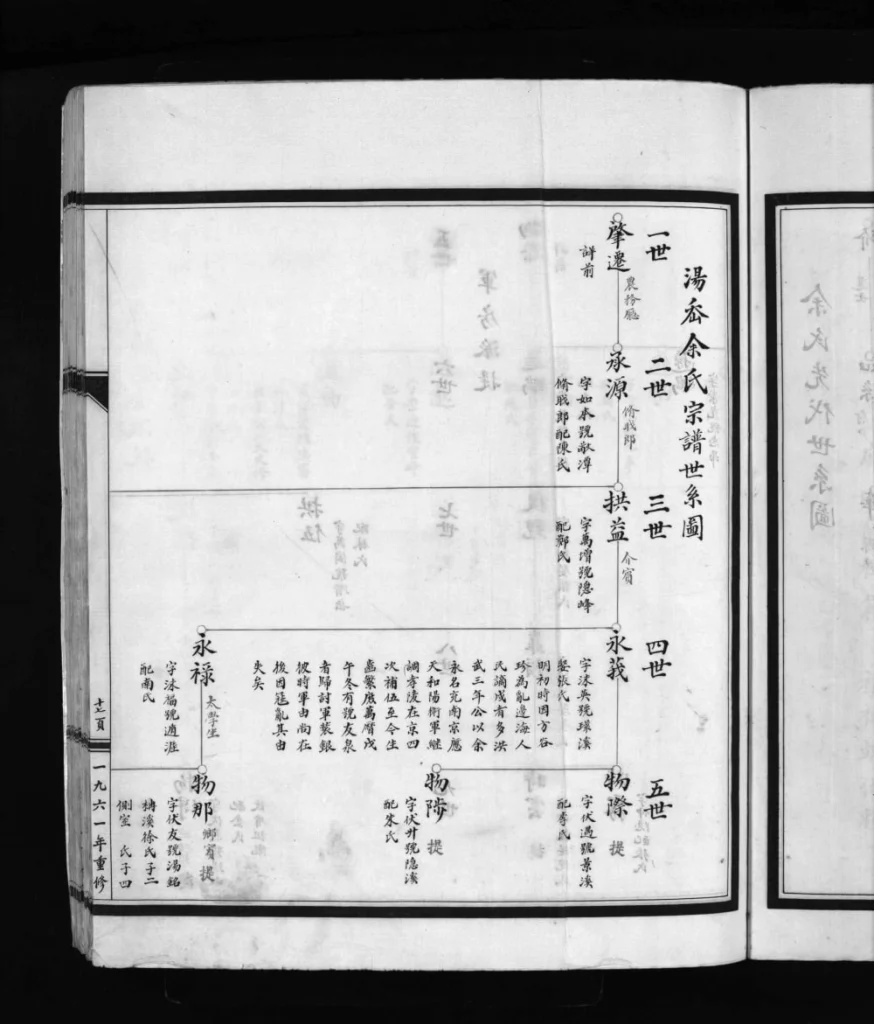 湯岙余氏宗譜世系圖
一世
肇遷
詳前
農拎廳
二世
承源
修職郎
字如本號敬淳
修職郎配陳氏
三世
拱益
介賓
字萬增號隱峰
配鄭氏
四世
永義
字沭英號環溪
娶張氏
明初時因方谷
珍為亂邊海人
民謫戍有多洪
武三年公以余
永名充南京鷹
天和陽衛軍繼
調孝陵在京四
次補伍至今生
齒繁庶萬曆戊
午冬有號友泉
者歸討軍裝銀
彼時軍由尚在
後因寇亂其由
失矣
永祿
太學生
字沭福號遁涯
配南氏
五世
物際
提
字伏過號景溪
配李氏
物陟
提
字伏升號隱溪
配朱氏
物那
鄉賓 提
字伏友號湯銘
楠溪徐氏子二
側室 氏子四
十二頁
一九六一年重修
余氏先代世系圖